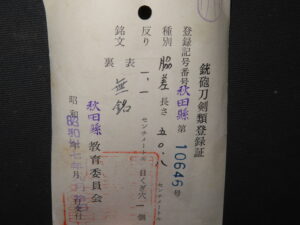 銃砲刀剣類登録証
登録記号番号 秋田縣 第 10646 号
種別 脇差 長さ 五〇.八 センチメートル
反り 一.一 センチメートル 目くぎ穴 一 個
銘文 表 無銘
裏
昭和 年 月
秋田縣 教育委員会